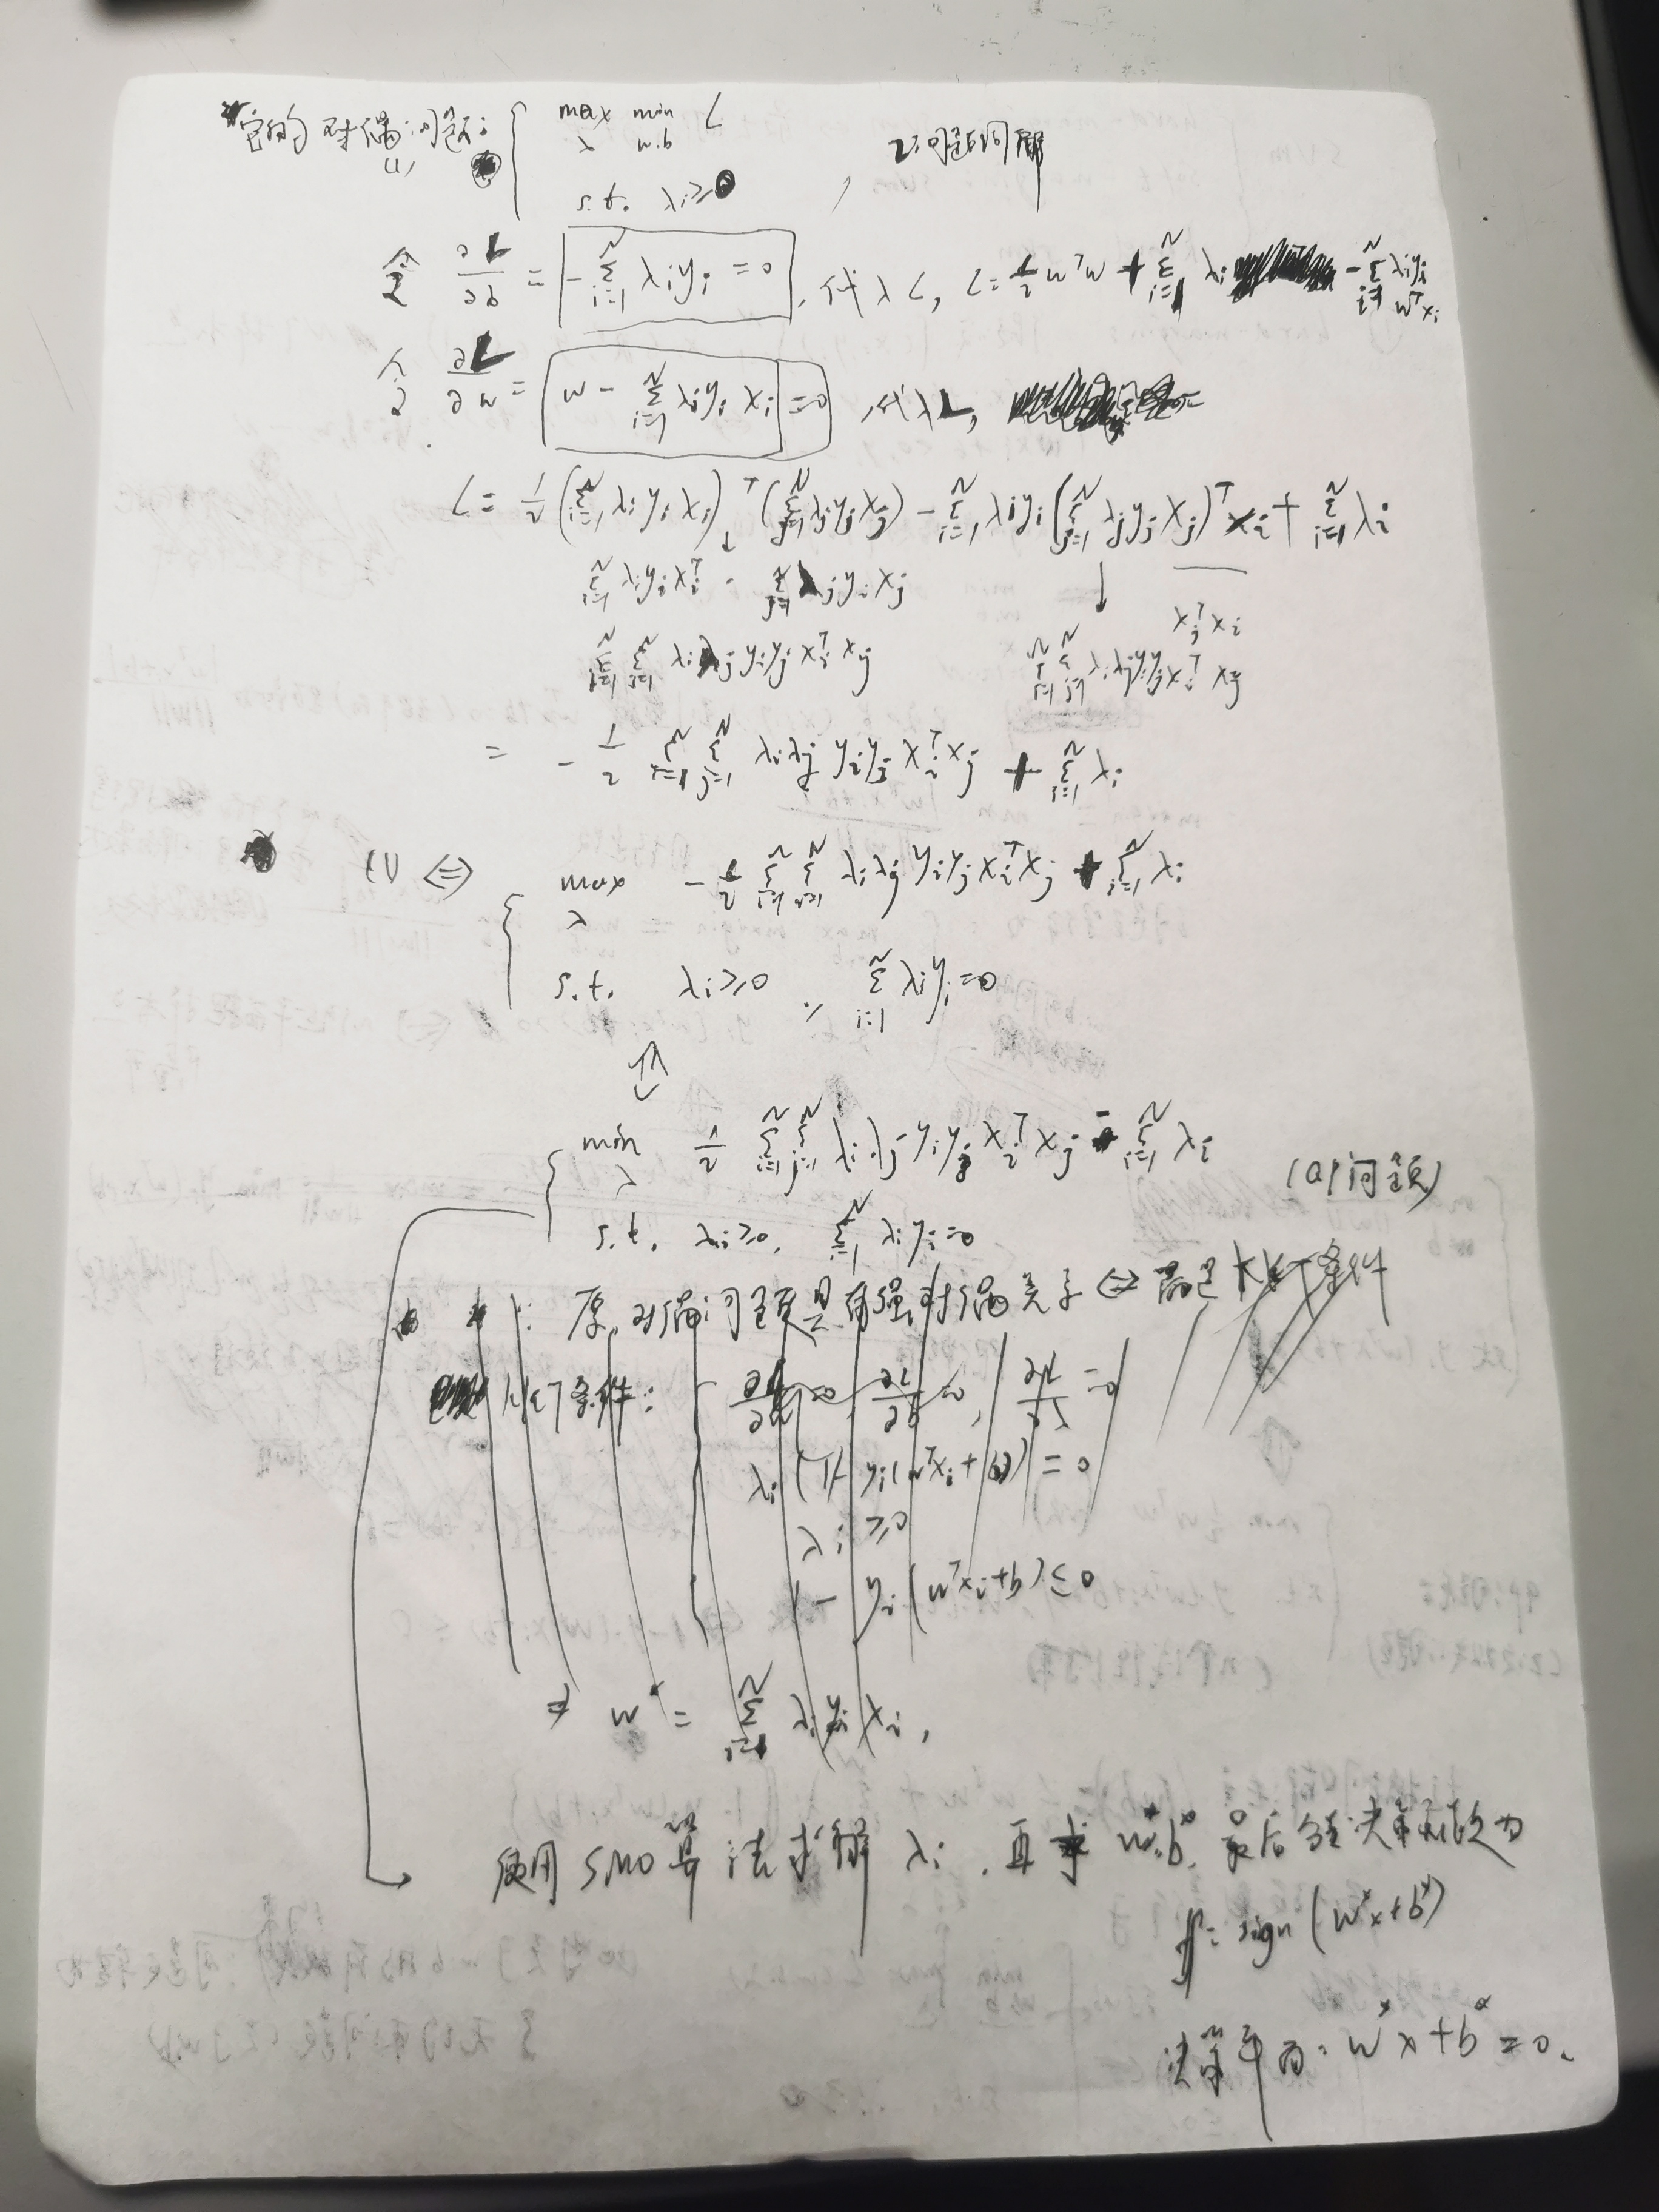 它的对偶问题: { max min L
λ w.b
(1)
s.t. λi≥0 , 2问题同解
令 ∂L/∂b = -Σ_{i=1}^N λiyi = 0, 代入L, L = 1/2 w^T w + Σ_{i=1}^N λi - Σ_{i=1}^N λiyi w^T xi
令 ∂L/∂w = w - Σ_{i=1}^N λiyi xi = 0, 代入L,
L = 1/2 (Σ_{i=1}^N λi yi xi)^T (Σ_{j=1}^N λjyjxj) - Σ_{i=1}^N λiyi (Σ_{j=1}^N λjyjxj)^T xi + Σ_{i=1}^N λi
↓ ↓
Σ_{i=1}^N λiyixi^T · Σ_{j=1}^N λjyjxj xj^T xi
Σ_{i=1}^N Σ_{j=1}^N λiλjyiyjxi^T xj Σ_{i=1}^N Σ_{j=1}^N λiλjyiyjxi^T xj
= -1/2 Σ_{i=1}^N Σ_{j=1}^N λiλj yiyj xi^T xj + Σ_{i=1}^N λi
(1) ⇔ { max - 1/2 Σ_{i=1}^N Σ_{j=1}^N λiλj yiyj xi^T xj + Σ_{i=1}^N λi
λ
s.t. λi≥0, Σ_{i=1}^N λiyi=0
⇕
{ min 1/2 Σ_{i=1}^N Σ_{j=1}^N λiλj yiyj xi^T xj - Σ_{i=1}^N λi
λ (QP问题)
s.t. λi≥0, Σ_{i=1}^N λiyi=0
: 原、对偶问题具有强对偶关系 ⇔ 满足KKT条件
KKT条件: { ∂L/∂w=0, ∂L/∂b=0, ∂L/∂λ=0
λi(1-yi(w^T xi+b))=0
λi≥0
1-yi(w^T xi+b)≤0
⇒ w* = Σ_{i=1}^N λiyixi,
使用SMO算法求解λi, 再求w*,b*, 最后 决策函数为
f = sign(w*x+b*)
决策平面: w*x+b*=0.